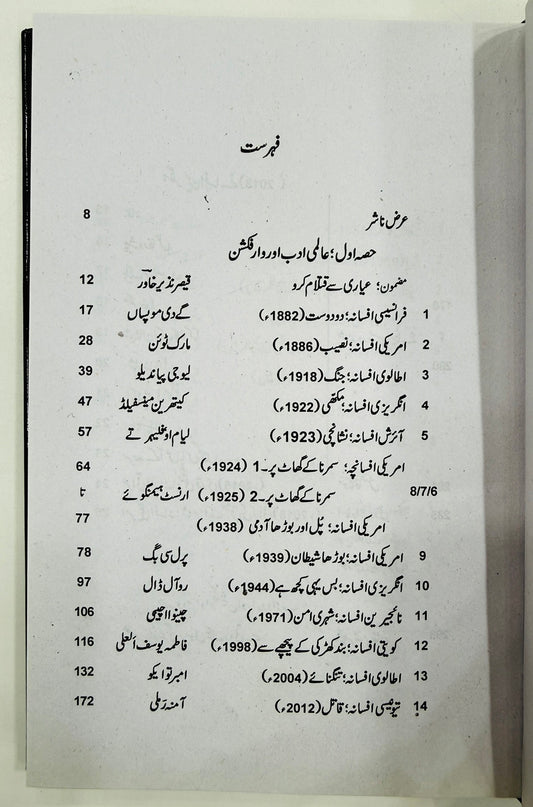 فہرست
عرض ناشر 8
حصہ اول؛ عالمی ادب اور وار فکشن
مضمون؛ عیاری سے قتلام کرو قیصر نذیر خاور 12
1 فرانسیسی افسانہ؛ دو دوست (1882ء) گے دی موپساں 17
2 امریکی افسانہ؛ نصیب (1886ء) مارک ٹوئن 28
3 اطالوی افسانہ؛ جنگ (1918ء) لیوجی پیاندیلو 39
4 انگریزی افسانہ؛ مکھی (1922ء) کیتھرین مینسفیلڈ 47
5 آئرش افسانہ؛ نشانچی (1923ء) لیام اوفلیہرتے 57
امریکی افسانچہ؛ سمرنا کے گھاٹ پر۔1 (1924ء) 64
8/7/6 سمرنا کے گھاٹ پر۔2 (1925ء) ارنسٹ ہیمنگوئے تا
امریکی افسانہ؛ پُل اور بوڑھا آدمی (1938ء) 77
9 امریکی افسانہ؛ بوڑھا شیطان (1939ء) پرل سی بک 78
10 انگریزی افسانہ؛ بس یہی کچھ ہے (1944ء) روآل ڈال 97
11 نائجیرین افسانہ؛ شہری امن (1971ء) چینوا اچیبی 106
12 کویتی افسانہ؛ بند کھڑکی کے پیچھے سے (1998ء) فاطمہ یوسف العلی 116
13 اطالوی افسانہ؛ تنگنائے (2004ء) امبرتو ایکو 132
14 تیونسی افسانہ؛ قاتل (2012ء) آمنہ رملی 172